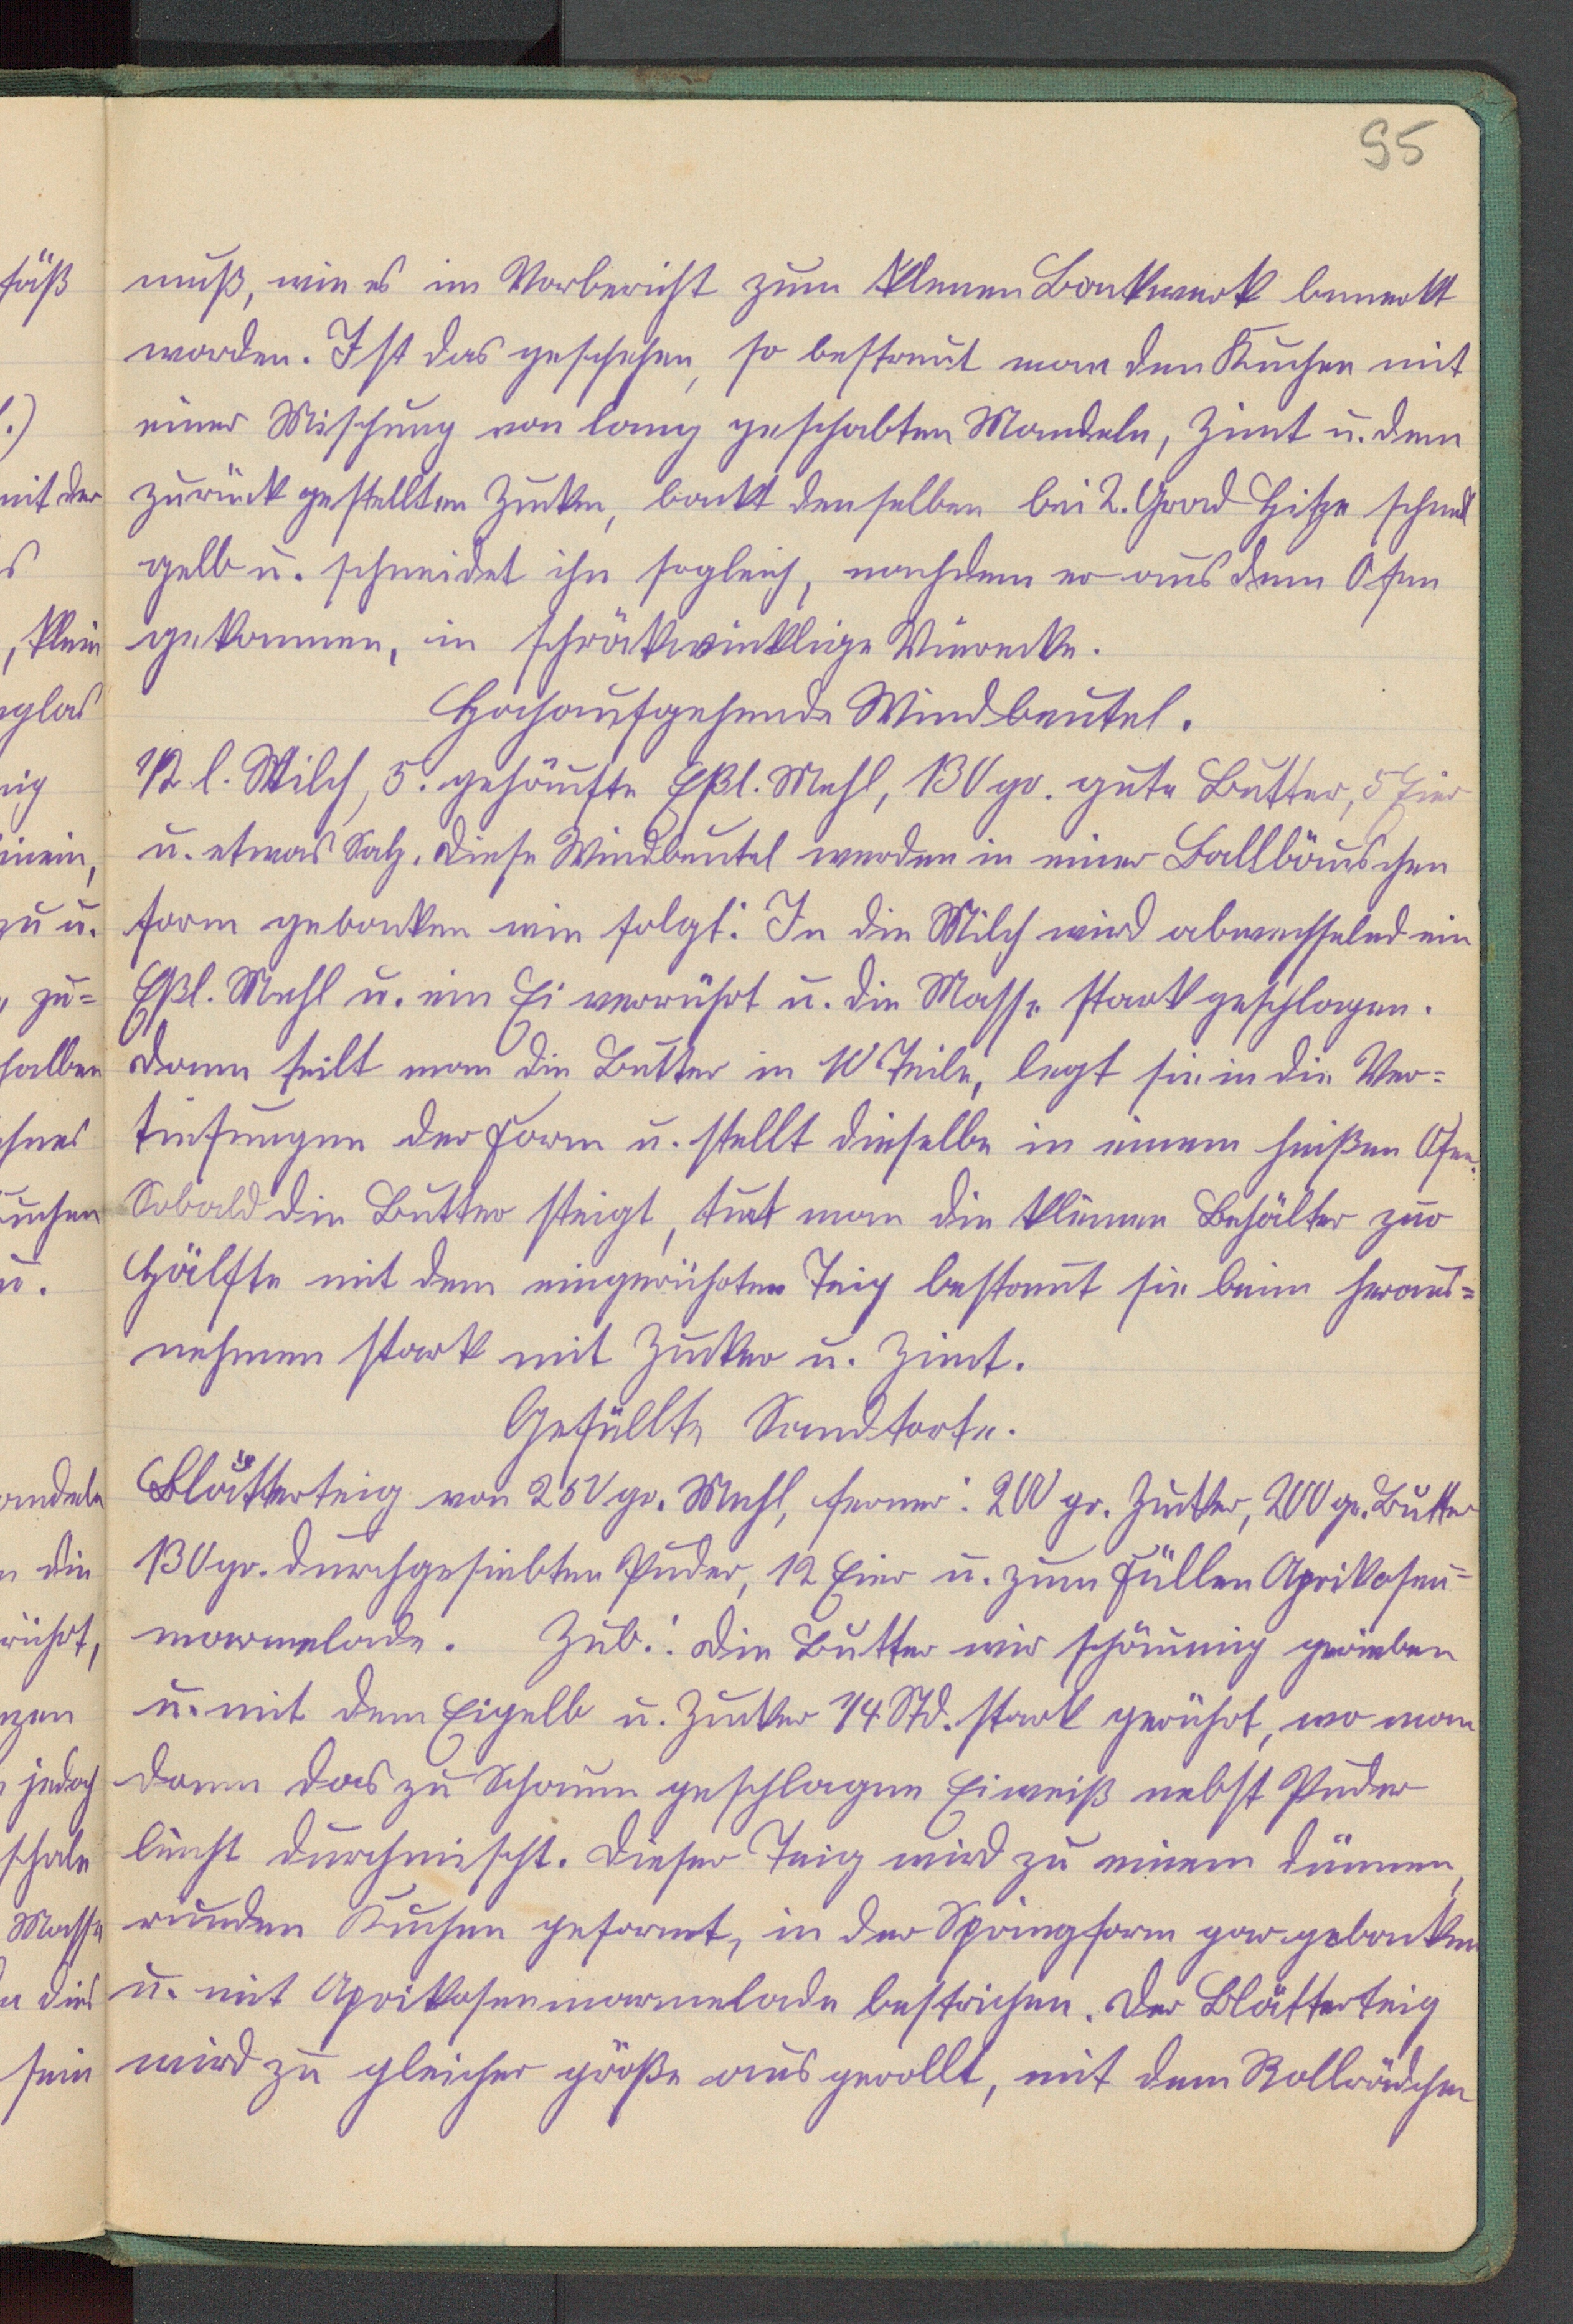 95
muß, wie es im Vorbericht zum kleinen Backwerk bemerkt
worden. Ist das geschehen, so bestreut man den Kuchen mit
einer Mischung von lang geschabten Mandeln, Zimt u. dem
zurück gestellten Zucker, backt denselben bei 2. Grad Hitze schnell
gelb u. schneidet ihn sogleich, nachdem er aus dem Ofen
gekommen, in schräkwinklige Vierecke.
Hochaufgehende Windbeutel.
1/2 l. Milch, 5. gehäufte Eßl. Mehl, 130 gr. gute Butter, 5 Eier
u. etwas Salz. Diese Windbeutel werden in einer Ballbäuschen
form gebacken wie folgt: In die Milch wird abwechselnd ein
Eßl. Mehl u. ein Ei verrührt u. die Masse stark geschlagen.
Dann teilt man die Butter in 10 Teile, legt sie in die Ver=
tiefungen der Form u. stellt dieselbe in einem heißen Ofen.
Sobald die Butter steigt, tut man die kleinen Behälter zur
Hälfte mit dem eingerührten Teig bestreut sie beim heraus=
nehmen stark mit Zucker u. Zimt.
Gefüllte Sandtorte.
Blätterteig von 250 gr. Mehl, ferner: 200 gr. Zucker, 200 gr. Butter
130 gr. durchgesiebten Puder, 12 Eier u. zum Füllen Aprikosen=
marmelade. Zub.: Die Butter wir schäumig gerieben
u. mit dem Eigelb u. Zucker 1/4 Std. stark gerührt, wo man
dann das zu Schaum geschlagene Eiweiß nebst Puder
leicht durchmischt. Dieser Teig wird zu einem dünnen,
runden Kuchen geformt, in der Springform gar gebacken
u. mit Aprikosenmarmelade bestrichen. Der Blätterteig
wird zu gleicher größe aus gerollt, mit dem Rollrädchen